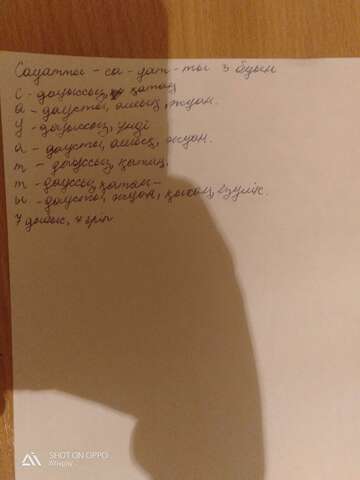 Сауатты - са - уат - ты 3 буын
С - дауыссыз, қатаң
а - дауысты, ашық, жуан.
У - дауыссыз, үнді
а - дауысты, ашық, жуан.
т - дауссыз, қатаң.
т - дауссыз, қатаң -
ы - дауысты, жуан, қысаң, езулік.
7 дыбыс, 7 әріп
SHOT ON OPPO
Атырау